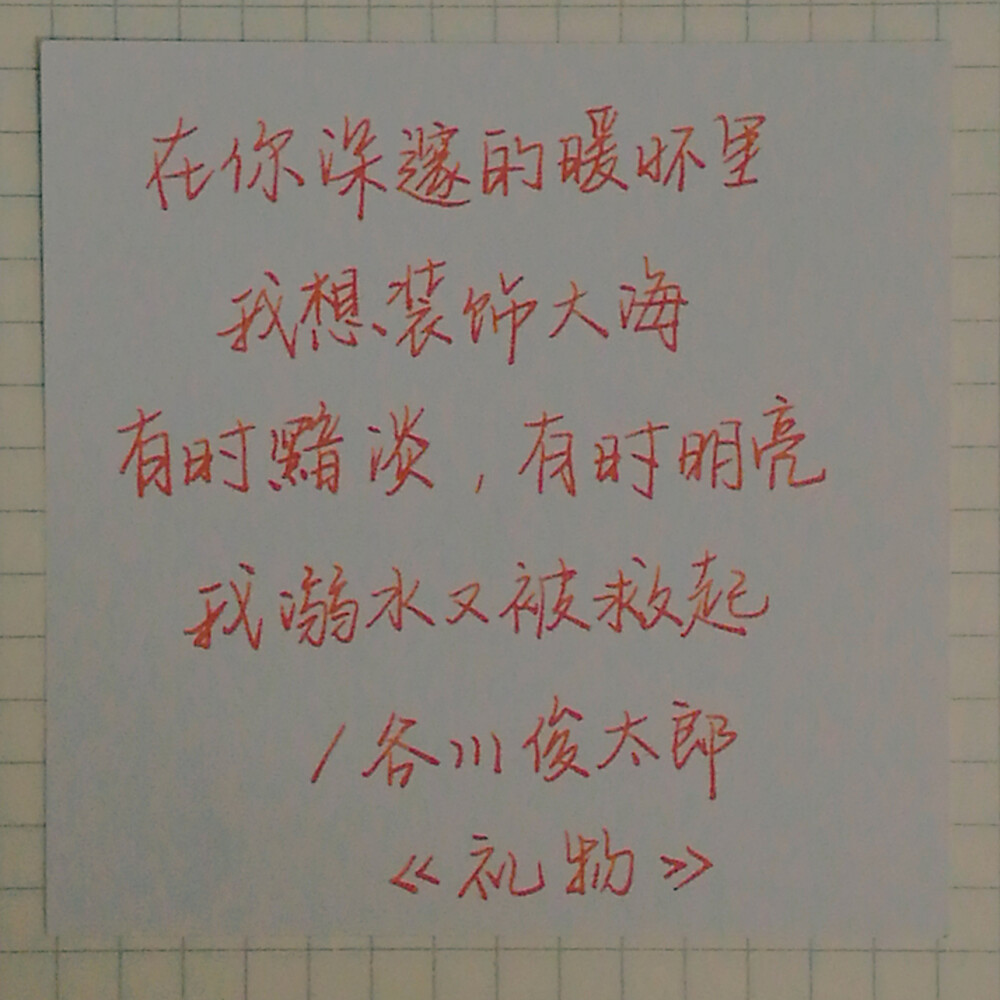 在你深邃的暖怀里
我想装饰大海
有时黯淡，有时明亮
我溺水又被救起
/谷川俊太郎
《礼物》